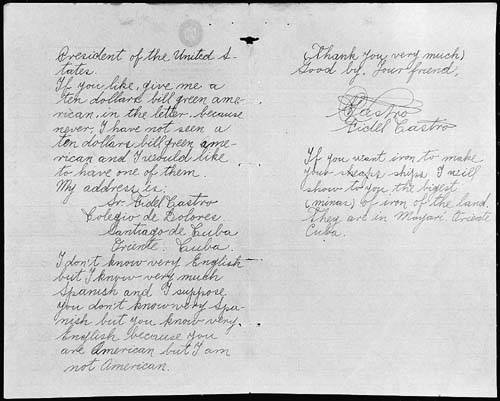 President of the United S-
tates.
If you like, give me a
ten dollars bill green ame-
rican, in the letter, because
never, I have not seen a
ten dollars bill green ame-
rican and I would like
to have one of them.
My address is:
Sr. Fidel Castro
Colegio de Dolores.
Santiago de Cuba
Oriente. Cuba.
I don't know very English
but I know very much
Spanish and I suppose
you don't know very Spa-
nish but you know very
English because you
are American but I am
not American.
(Thank you very much)
Good by. Your friend,
Castro
Fidel Castro
If you want iron to make
your sheaps ships I will
show to you the bigest
(minas) of iron of the land.
They are in Mayari Oriente
Cuba.